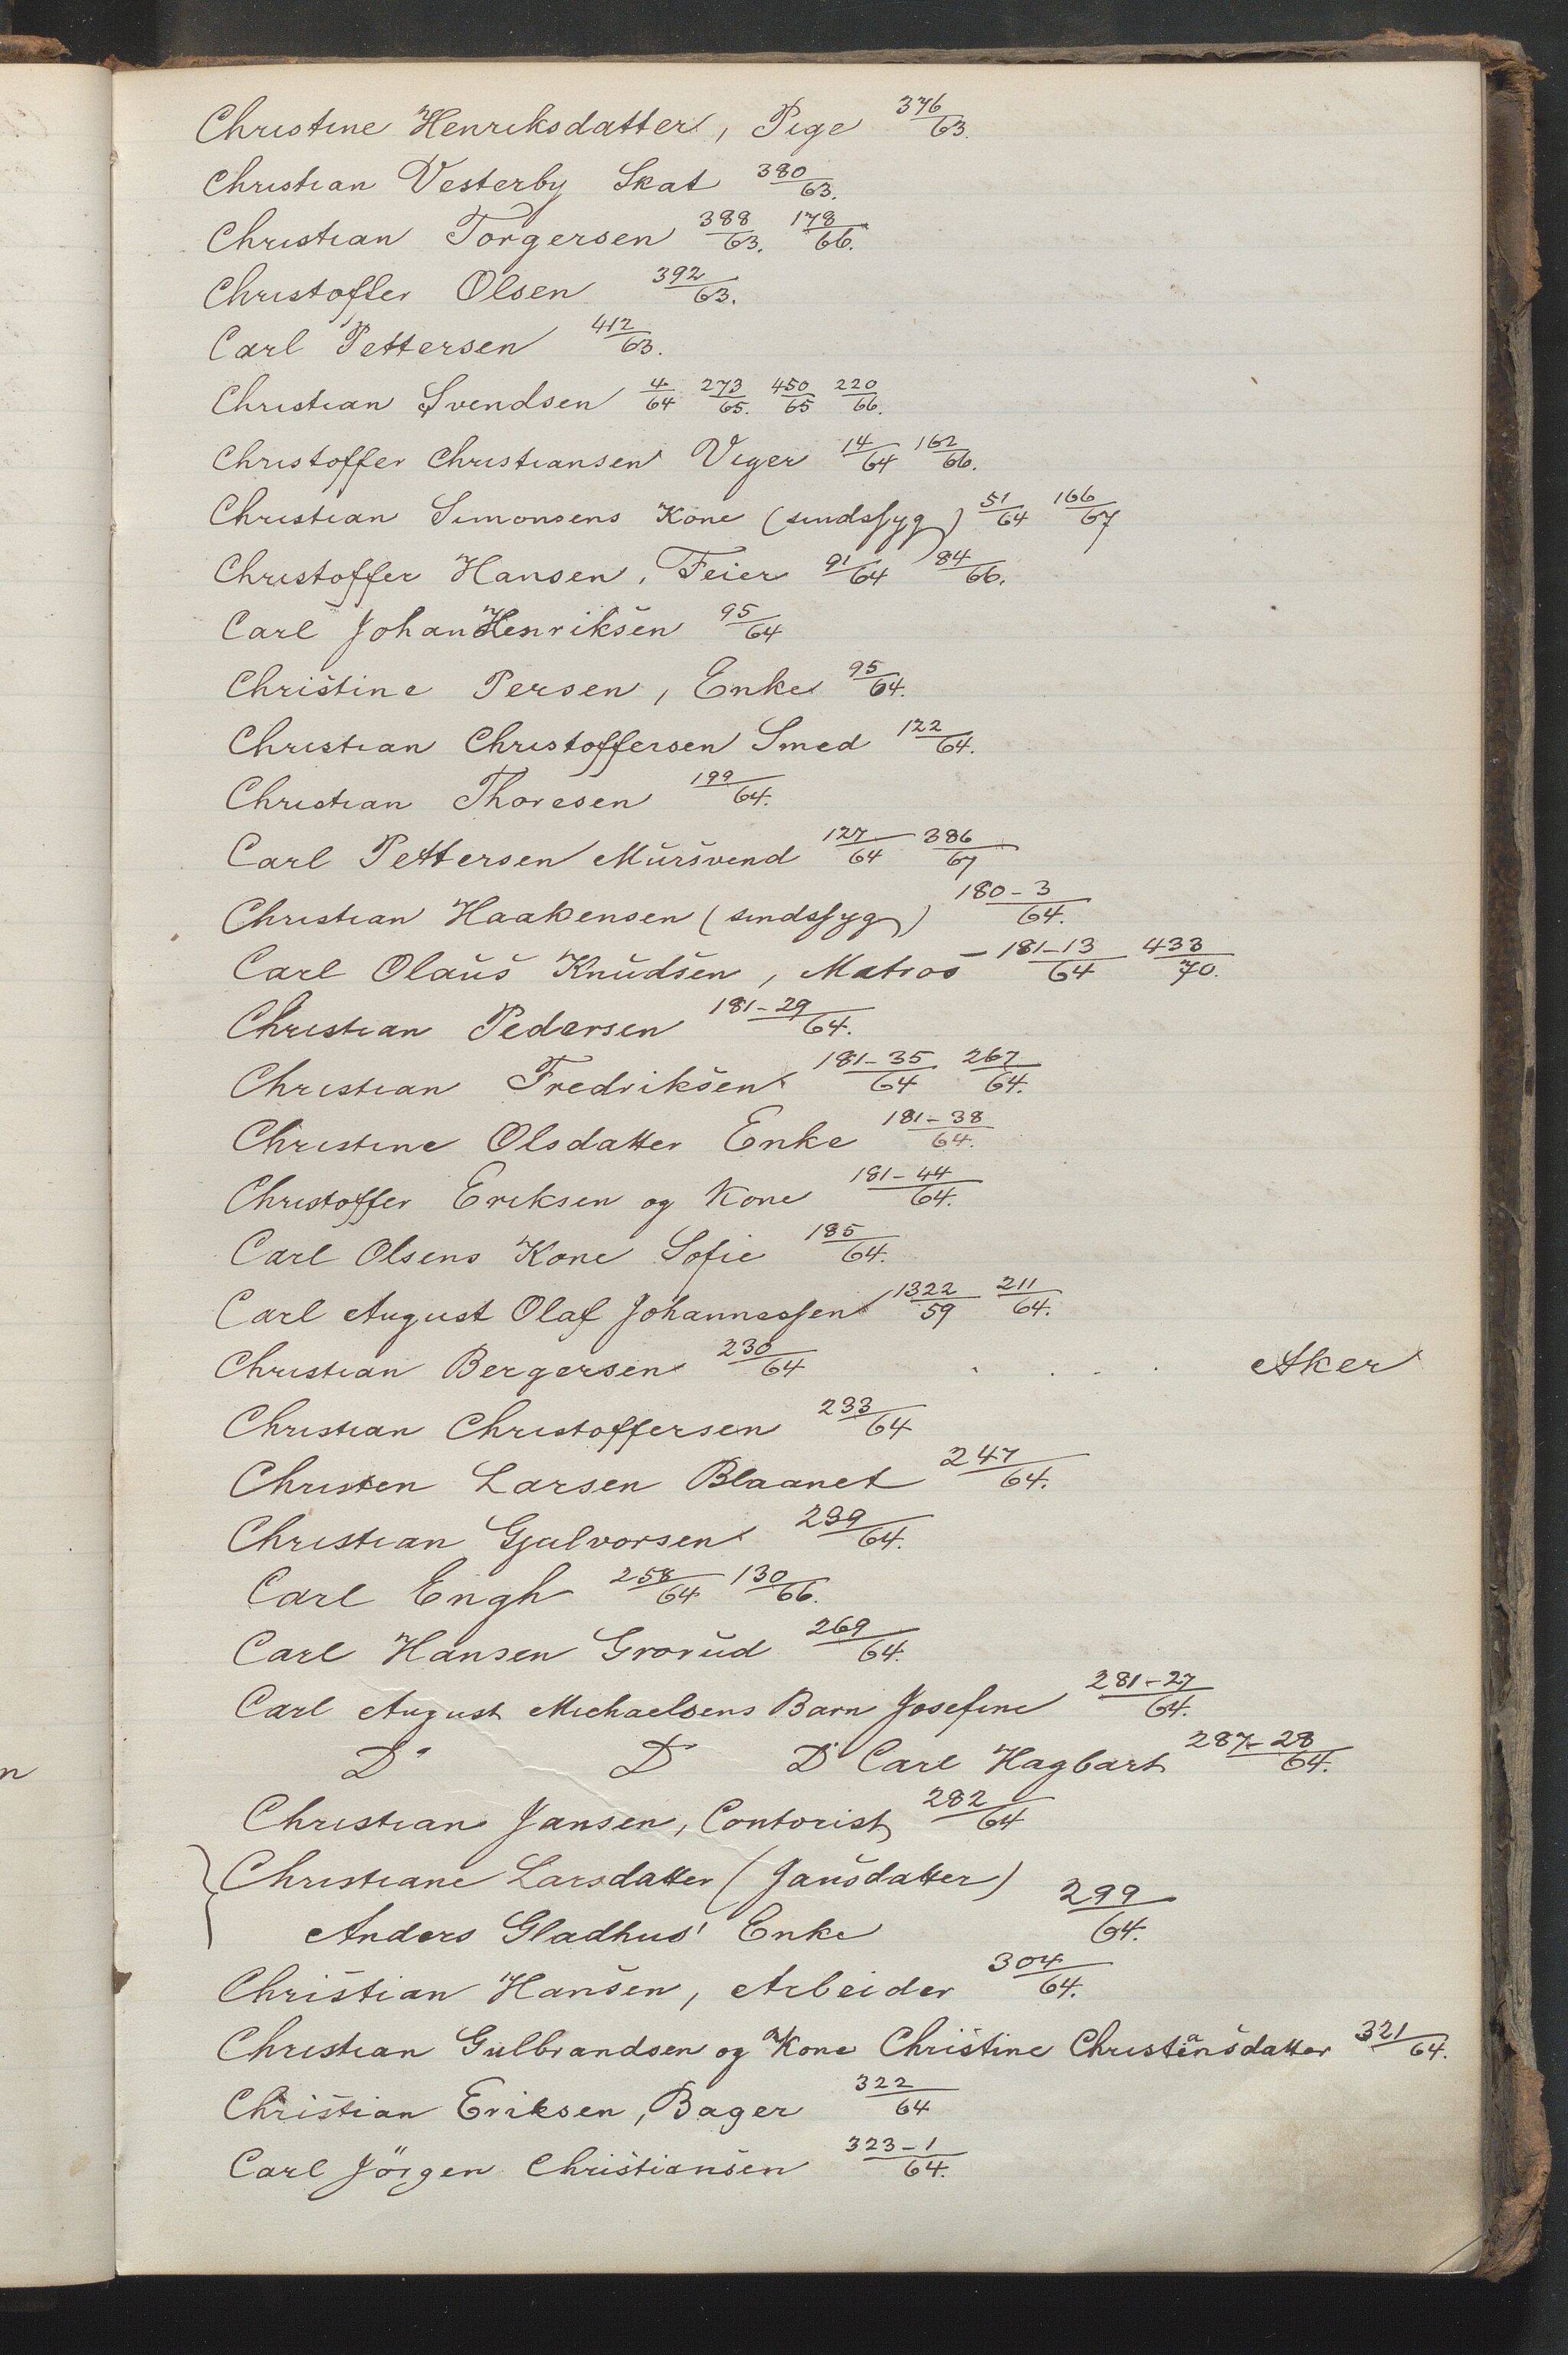 Christine Henriksdatter, Pige 376/63.
Christian Vesterby Skat 380/63.
Christian Torgersen 388/63. 178/66.
Christoffer Olsen 392/63.
Carl Pettersen 412/63.
Christian Svendsen 4/64 273/65. 450/65 220/66.
Christoffer Christiansen Viger 14/64 162/66.
Christian Simonsens Kone (sindssyg) 51/64 166/67
Christoffer Hansen, Feier 91/64 84/66.
Carl Johan Henriksen 95/64
Christine Persen, Enke 95/64.
Christian Christoffersen Smed 122/64.
Christian Thoresen 199/64.
Carl Pettersen Mursvend 127/64 386/67
Christian Haakensen (sindssyg) 180-3/64.
Carl Olaus Knudsen, Matros 181-13/64 433/70.
Christian Pedersen 181-29/64.
Christian Fredriksen 181-35/64 267/64.
Christine Olsdatter Enke 181-38/64.
Christoffer Eriksen og Kone 181-44/64.
Carl Olsens Kone Sofie 185/64.
Carl August Olaf Johannessen 1322/59 211/64.
Christian Bergersen 230/64 . . . . Aker
Christian Christoffersen 233/64
Christen Larsen Blaanet 247/64.
Christian Gjulvorsen 239/64.
Carl Engh 258/64 130/66.
Carl Hansen Grorud 269/64.
Carl August Michaelsens Barn Josefine 281-27/64.
Do Do Do Carl Hagbart 287-28/64.
Christian Jansen, Contorist 282/64
Christiane Larsdatter (Jansdatter)
Anders Gladhus' Enke 299/64.
Christian Hansen, Arbeider 304/64.
Christian Gulbrandsen og Kone Christine Christiansdatter 321/64.
Christian Eriksen, Bager 322/64
Carl Jörgen Christiansen 323-1/64.
n